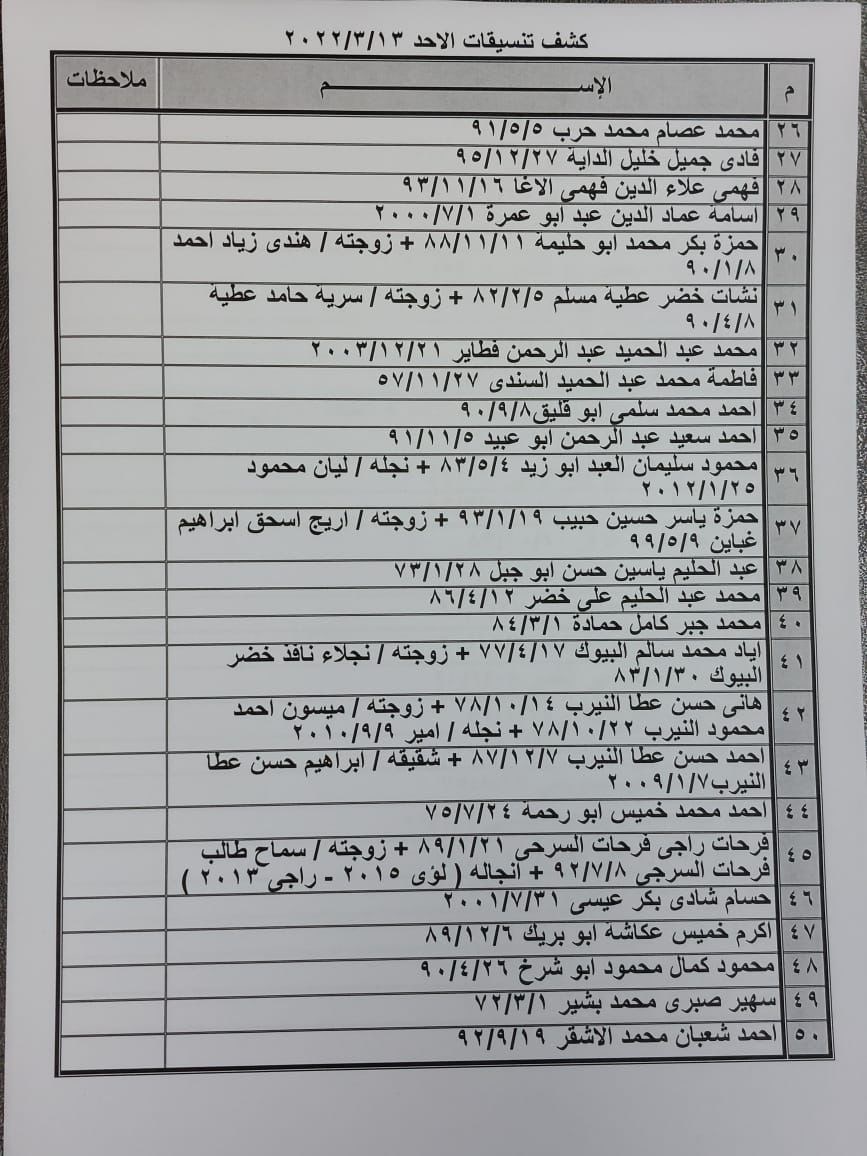 كشف تنسيقات الاحد ٢٠٢٢/٣/١٣
م الإســـــــــم ملاحظات
٢٦ محمد عصام محمد حرب ٩١/٥/٥
٢٧ فادى جميل خليل الداية ٩٥/١٢/٢٧
٢٨ فهمى علاء الدين فهمى الاغا ٩٣/١١/١٦
٢٩ اسامة عماد الدين عبد ابو عمرة ٢٠٠٠/٧/١
٣٠ حمزة بكر محمد ابو حليمة ٨٨/١١/١١ + زوجته / هندى زياد احمد
٩٠/١/٨
٣١ نشات خضر عطية مسلم ٨٢/٢/٥ + زوجته / سرية حامد عطية
٩٠/٤/٨
٣٢ محمد عبد الحميد عبد الرحمن فطاير ٢٠٠٣/١٢/٢١
٣٣ فاطمة محمد عبد الحميد السندى ٥٧/١١/٢٧
٣٤ احمد محمد سلمى ابو قليق٩٠/٩/٨
٣٥ احمد سعيد عبد الرحمن ابو عبيد ٩١/١١/٥
٣٦ محمود سليمان العبد ابو زيد ٨٣/٥/٤ + نجله / ليان محمود
٢٠١٢/١/٢٥
٣٧ حمزة ياسر حسين حبيب ٩٣/١/١٩ + زوجته / اريج اسحق ابراهيم
غباين ٩٩/٥/٩
٣٨ عبد الحليم ياسين حسن ابو جبل ٧٣/١/٢٨
٣٩ محمد عبد الحليم على خضر ٨٦/٤/١٢
٤٠ محمد جبر كامل حمادة ٨٤/٣/١
٤١ اياد محمد سالم البيوك ٧٧/٤/١٧ + زوجته / نجلاء نافذ خضر
البيوك ٨٣/١/٣٠
٤٢ هانى حسن عطا النيرب ٧٨/١٠/١٤ + زوجته / ميسون احمد
محمود النيرب ٧٨/١٠/٢٢ + نجله / امير ٢٠١٠/٩/٩
٤٣ احمد حسن عطا النيرب ٨٧/١٢/٧ + شقيقه / ابراهيم حسن عطا
النيرب٢٠٠٩/١/٧
٤٤ احمد محمد خميس ابو رحمة ٧٥/٧/٢٤
٤٥ فرحات راجى فرحات السرحى ٨٩/١/٢١ + زوجته / سماح طالب
فرحات السرجى ٩٢/٧/٨ + انجاله ( لؤى ٢٠١٥ - راجى ٢٠١٣ )
٤٦ حسام شادى بكر عيسى ٢٠٠١/٧/٣١
٤٧ اكرم خميس عكاشة ابو بريك ٨٩/١٢/٦
٤٨ محمود كمال محمود ابو شرخ ٩٠/٤/٢٦
٤٩ سهير صبرى محمد بشير ٧٢/٣/١
٥٠ احمد شعبان محمد الاشقر ٩٢/٩/١٩